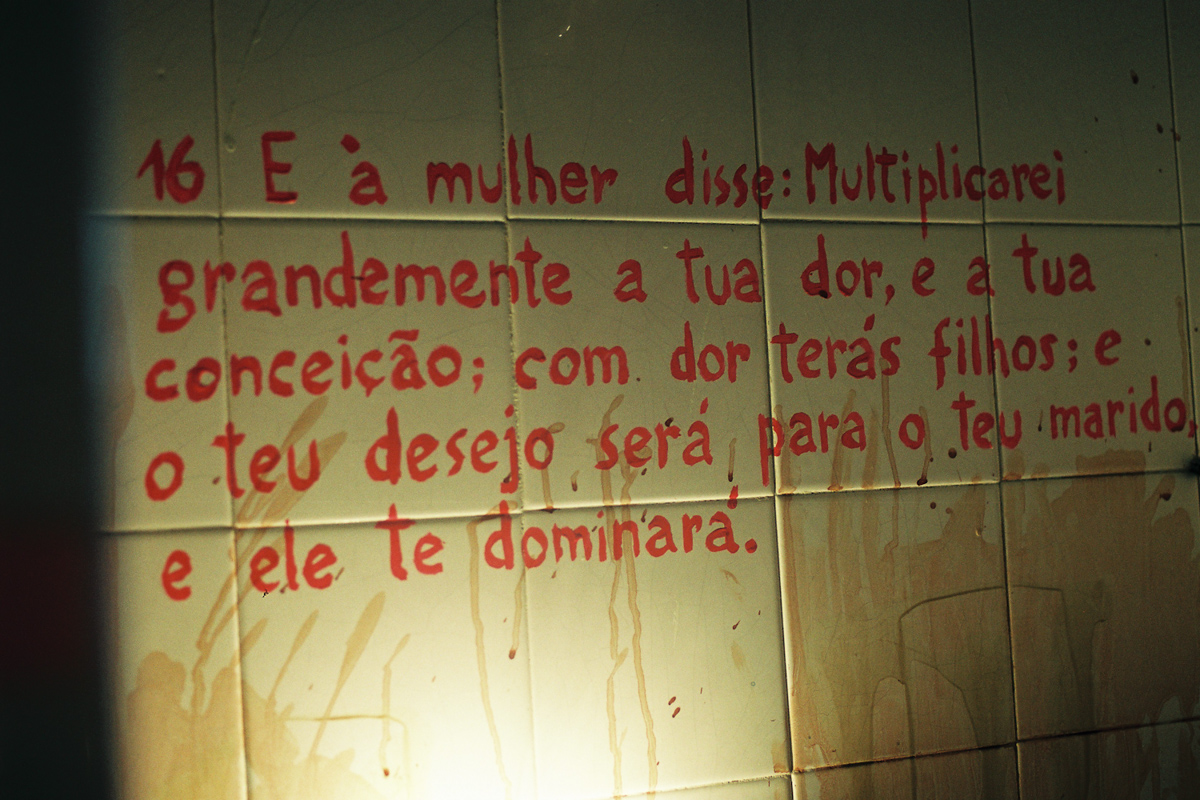 16 E à mulher disse: Multiplicarei
grandemente a tua dor, e a tua
conceição; com dor terás filhos; e
o teu desejo será para o teu marido,
e ele te dominará.